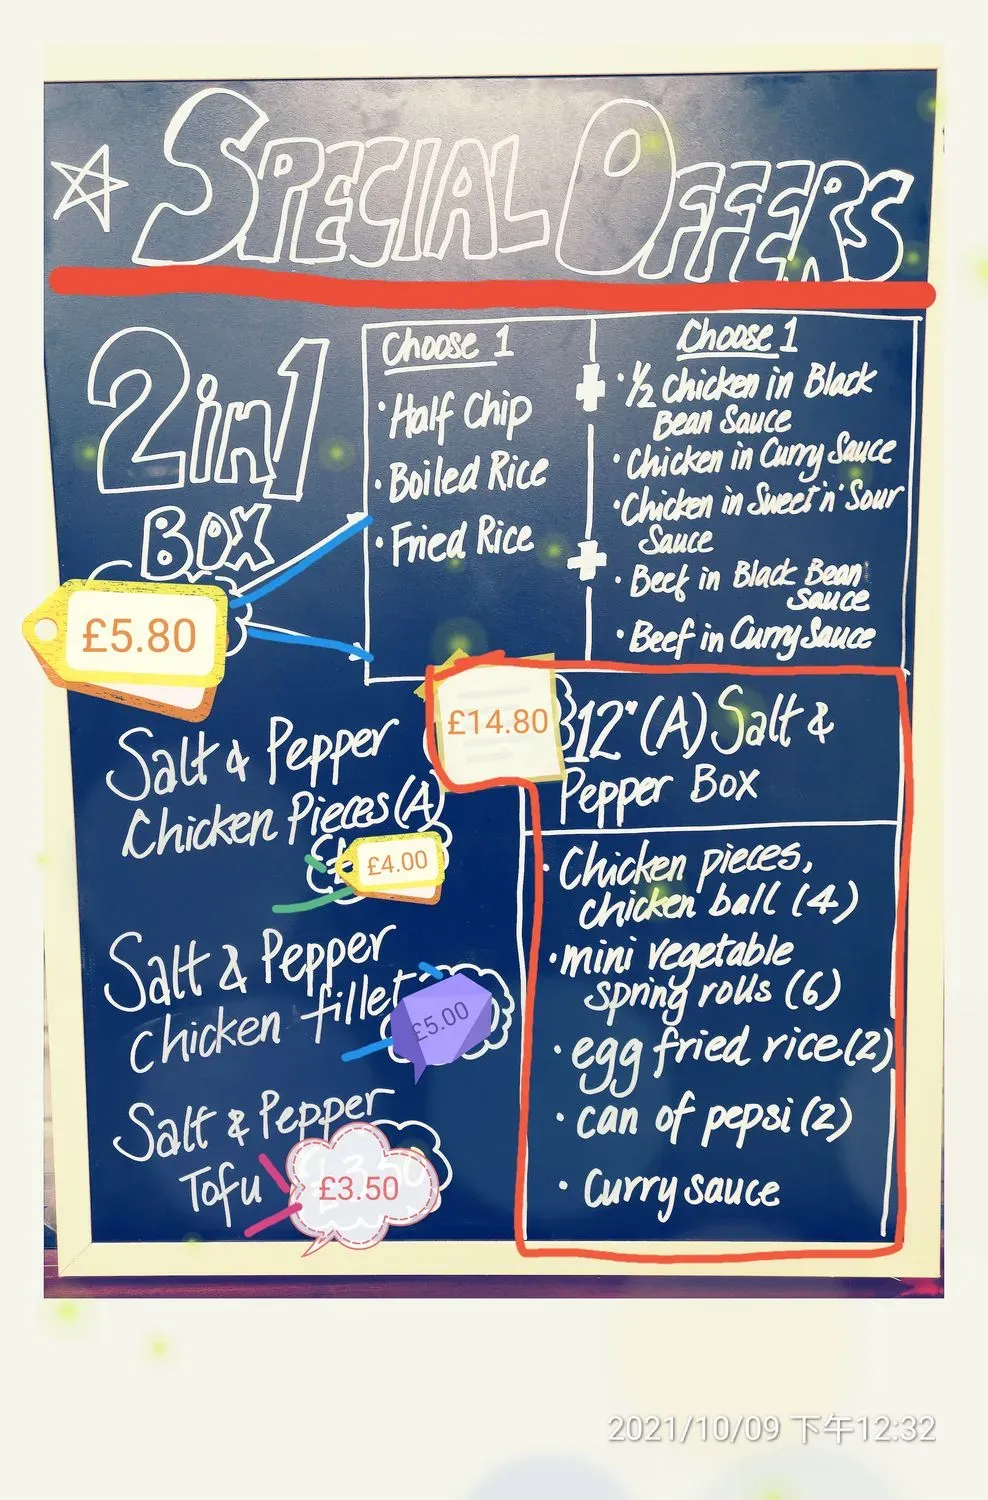 SPECIAL OFFERS
2in1
BOX
£5.80
Choose 1
· Half Chip
· Boiled Rice
· Fried Rice
+
+
Choose 1
· ½ Chicken in Black
Bean Sauce
· Chicken in Curry Sauce
· Chicken in Sweet 'n' Sour
Sauce
· Beef in Black Bean
Sauce
· Beef in Curry Sauce
Salt & Pepper
Chicken Pieces (A)
£4.00
Salt & Pepper
Chicken fillet
£5.00
Salt & Pepper
Tofu
£3.50
£14.80
12" (A) Salt &
Pepper Box
· Chicken pieces,
chicken ball (4)
· mini vegetable
spring rolls (6)
· egg fried rice (2)
· can of pepsi (2)
· Curry sauce
2021/10/09 下午12:32